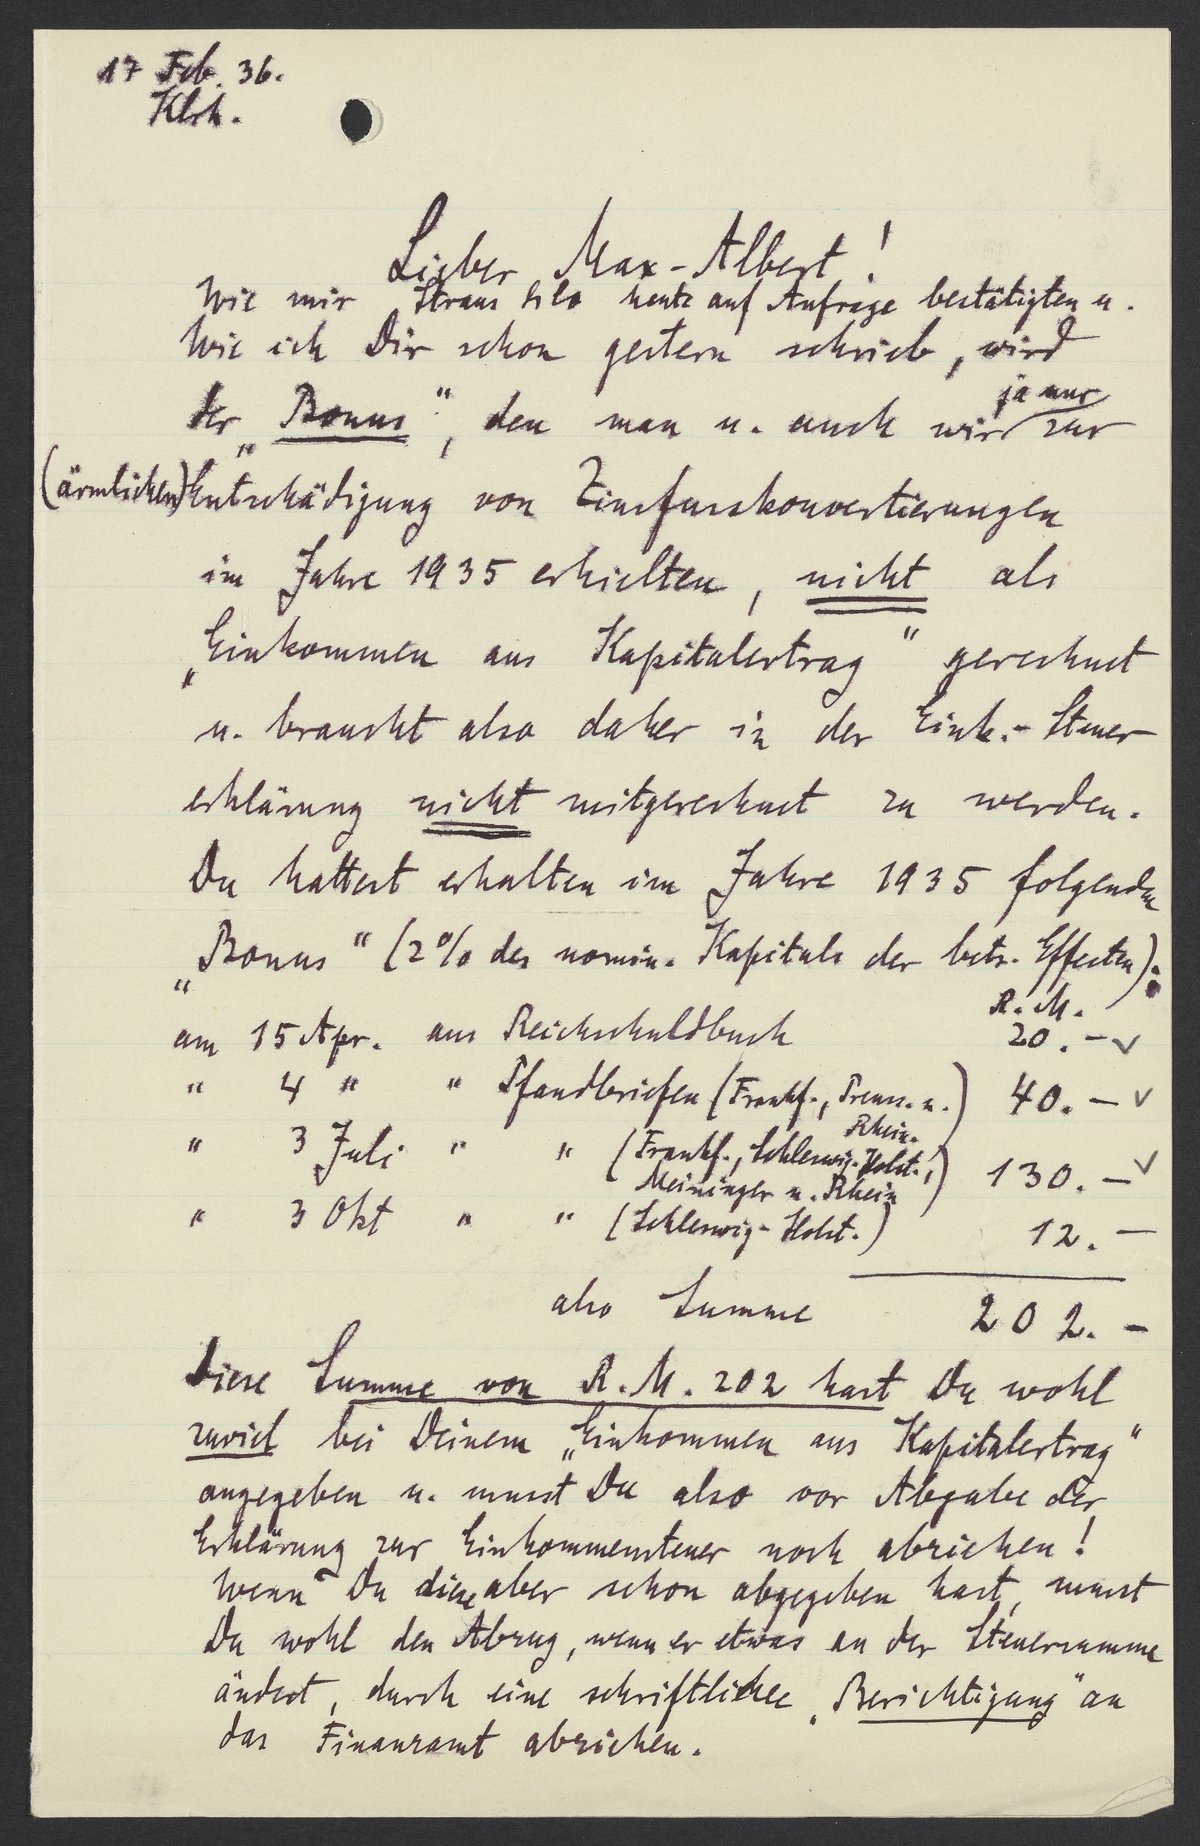 17 Feb. 36.
Klrh.
Lieber Max-Albert!
Wie mir Straus & Co heute auf Anfrage bestätigten u.
wie ich Dir schon gestern schrieb, wird
der „Bonus", den man u. auch wir ja nur zur
(ärmlichen) Entschädigung von Zinsfusskonvertierungen
im Jahre 1935 erhielten, nicht als
„Einkommen aus Kapitalertrag" gerechnet
u. braucht also daher in der Eink.-Steuer
erklärung nicht mitgerechnet zu werden.
Du hattest erhalten im Jahre 1935 folgenden
„Bonus" (2% des nomin. Kapitals der betr. Effecten):
R.M.
am 15 Apr. aus Reichschuldbuch 20.-
" 4 " " Pfandbriefen (Frankf., Preuss. u. Rhein.) 40.-
" 3 Juli " " (Frankf., Schleswig-Holst., Meininger u. Rhein) 130.-
" 3 Okt " " (Schleswig-Holst.) 12.-
also Summe 202.-
Diese Summe von R.M. 202 hast Du wohl
zuviel bei Deinem „Einkommen aus Kapitalertrag"
angegeben u. musst Du also vor Abgabe der
Erklärung zur Einkommensteuer noch abziehen!
Wenn Du diese aber schon abgegeben hast, musst
Du wohl den Abzug, wenn er etwas an der Steuersumme
ändert, durch eine schriftliche „Berichtigung" an
das Finanzamt abziehen.